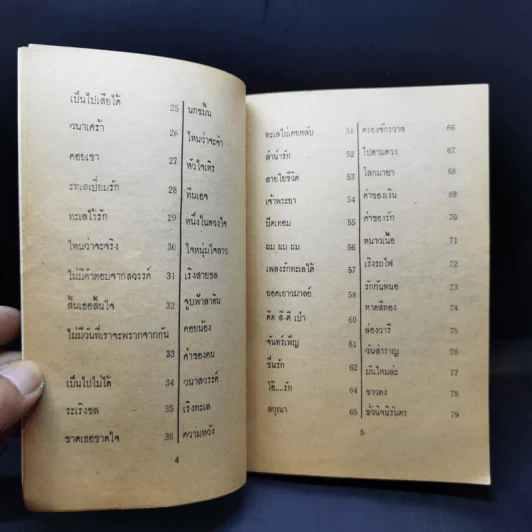 เป็นไปเสียได้ 25
วนาเศร้า 26
คอยเขา 27
ทะเลเปี่ยมรัก 28
ทะเลไร้รัก 29
ไหนว่าจะจริง 30
ไม่มีคำตอบจากสวรรค์ 31
สิ้นเธอสิ้นใจ 32
ไม่มีวันที่เราจะพรากจากกัน
33
เป็นไปไม่ได้ 34
ระเริงชล 35
ขาดเธอขาดใจ 36
นกขมิ้น
ไหนว่าจะจำ
หัวใจเถิร
ทีนเอจ
หนึ่งในดวงใจ
ใจหนุ่มใจสาว
เริงสายชล
จูบฟ้าลาดิน
คอยน้อง
ค่าของคน
วนาสวรรค์
เริงทะเล
ความหวัง
4
ทะเลไม่เคยหลับ 51
ลำนำรัก 52
สายใยชีวิต 53
เจ้าพระยา 54
ยึดเทอม 55
ผม ผม ผม 56
เพลงรักทะเลใต้ 57
ยอดเยาวมาลย์ 58
ดีด สี ตี เป่า
จันทร์เพ็ญ
ชื่นรัก
โอ้....รัก 64
สกุณา 65
ครองจักรวาล 66
ไปตามดวง 67
โลกมายา 68
ค่าของเงิน 69
ค่าของรัก 70
หนาวเนื้อ 71
เริงรถไฟ 72
รักกันหนอ 73
หาดสีทอง 74
ล่องวารี 75
วันสำราญ 76
มันไหมล่ะ 77
ชาวดง 78
ชั่วนิจนิรันดร 79
5